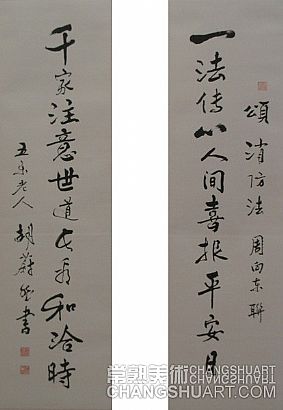 頌消防法 周向东聯
一法传心人间喜报平安月
千家注意世道长看和洽時
老人 胡蔚 書
常熟美術 CHANGSHUART
CHANGSHUART.COM